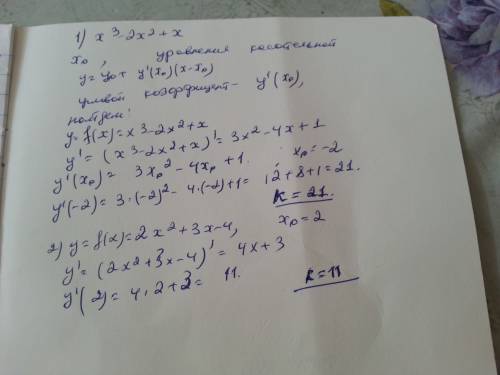 1) x³-2x²+x
x₀, уровнения косательной
y=y₀+ y'(x₀)(x-x₀)
угловой коэффицент- y'(x₀),
найдем:
y=f(x)=x³-2x²+x
y'=(x³-2x²+x)'=3x²-4x+1
y'(x₀)= 3x₀²-4x₀+1. x₀=-2
y'(-2)=3·(-2)²-4·(-2)+1= 12+8+1=21.
K=21.
2) y=f(x)=2x²+3x-4, x₀=2
y'=(2x²+3x-4)'=4x+3
y'(2)=4·2+3= 11. K=11